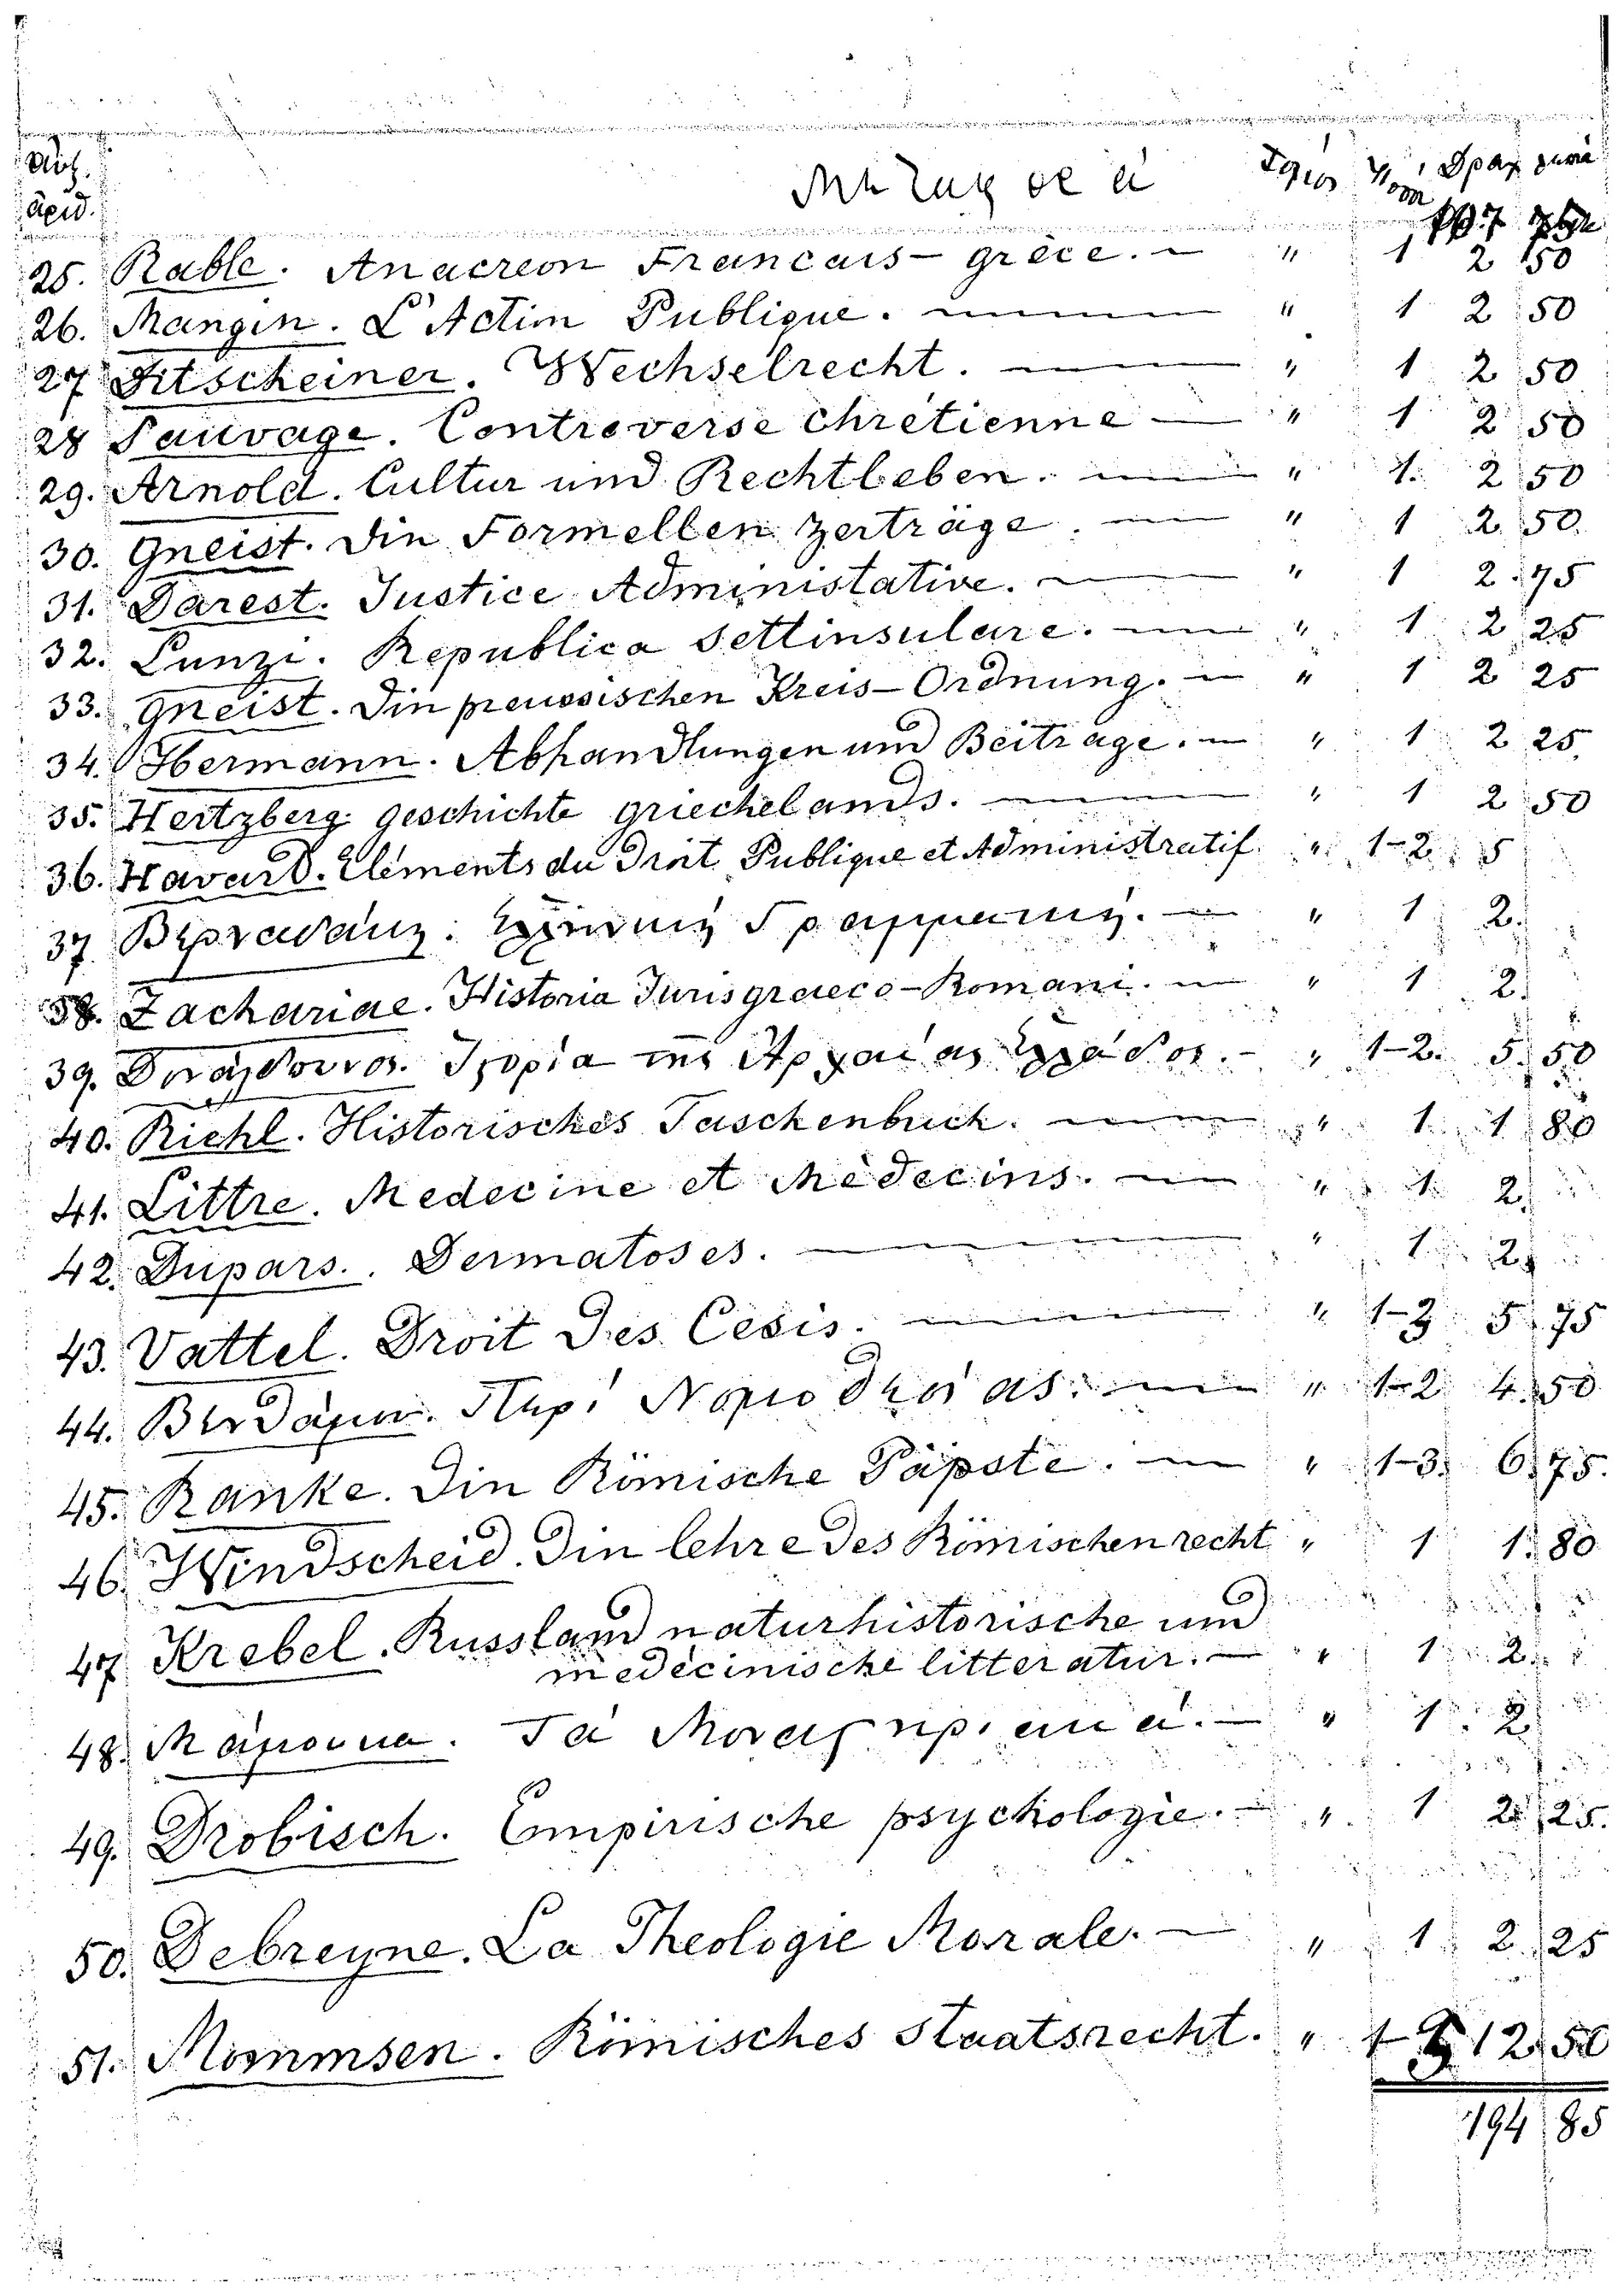 Αὐξ.
ἀριθ.
25. Rable. Anacreon Francais - grèce. — " 1 2 50
26. Mangin. L'Action Publique. — " 1 2 50
27 Fitscheiner. Wechselrecht. — " 1 2 50
28 Sauvage. Controverse chrétienne — " 1 2 50
29. Arnold. Cultur und Rechtleben. — " 1. 2 50
30. Gneist. Din Formellen Zerträge. — " 1 2 50.
31. Darest. Justice Administative. — " 1 2.75
32. Lunzi. Republica Settinsulare. — " 1 2 25
33. Gneist. Din preussischen Kreis-Ordnung. — " 1 2 25
34. Hermann. Abhandlungen und Beiträge. — " 1 2 25.
35. Hertzberg. geschichte griechelands. — " 1 2 50
36. Havard. Eléments du Droit Publique et Administratif. " 1-2 5
37 " 1 2.
38. Zachariae. Historia Juris graeco-Romani. — " 1 2.
39. Ἱστορία τῆς Ἀρχαίας Ἑλλάδος. - " 1-2. 5.50
40. Riehl. Historisches Taschenbuch. — " 1. 1 80
41. Littre. Medecine et Médecins. — " 1. 2.
42. Dupars. Dermatoses. — " 1 2.
43. Vattel. Droit Des Cesis. — " 1-3 5.75
44. " 1-2 4.50
45. Ranke. Din Römische Päpste. — " 1-3. 6.75.
46. Windscheid. Din lehre Des Römischen recht " 1 1.80
47 Krebel. Russland naturhistorische und
medecinische litteratur. — " 1 2.
48. Τὰ — " 1. 2
49. Drobisch. Empirische psychologie. — " 1 2 25.
50. Debreyne. La Theologie Morale. — " 1 2.25
51. Mommsen. Römisches Staatsrecht. " 12.50
194.85